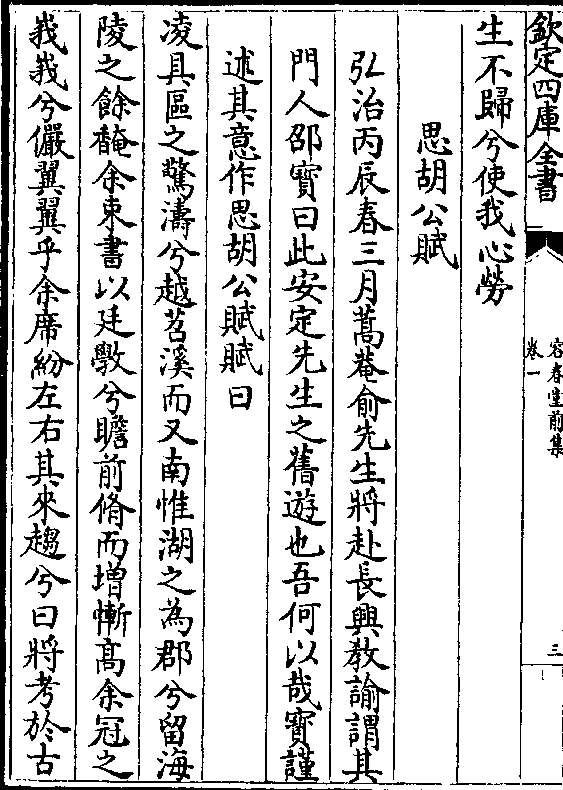 欽定四庫全書
容春堂前集
卷一
三
生不歸兮使我心勞
思胡公賦
弘治丙辰春三月蒿菴俞先生將赴長興教諭謂其
門人邵寳曰此安定先生之舊遊也吾何以哉寳謹
述其意作思胡公賦賦曰
凌具區之驚濤兮越苕溪而又南惟湖之為郡兮留海
陵之餘馣余東書以廷斆兮瞻前脩而增慚髙余冠之
峩峩兮儼翼翼乎余席紛左右其來趨兮曰將考於古